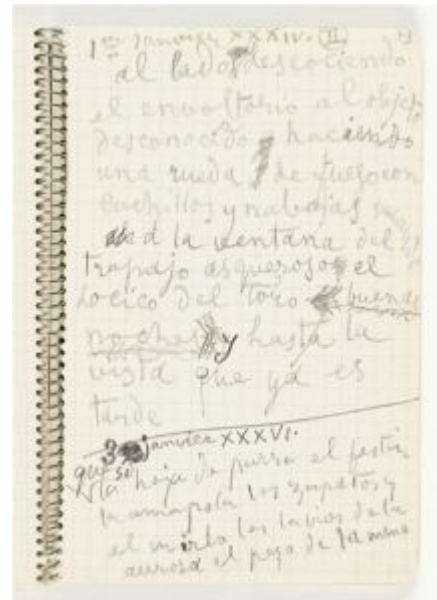 1er janvier XXXIV. (II)
al lado descociendo
el envoltorio al objeto
desconocido haciendo
una rueda de fuego con
cuchillos y nabajas
a la ventana del
trapajo asqueroso el
hocico del toro buenas
noches y hasta la
vista que ya es
tarde
3 janvier XXXVI.
que si la hoja de parra el festin
la amapola los zapatos y
el mirlo los labios de la
aurora el peso de la mano